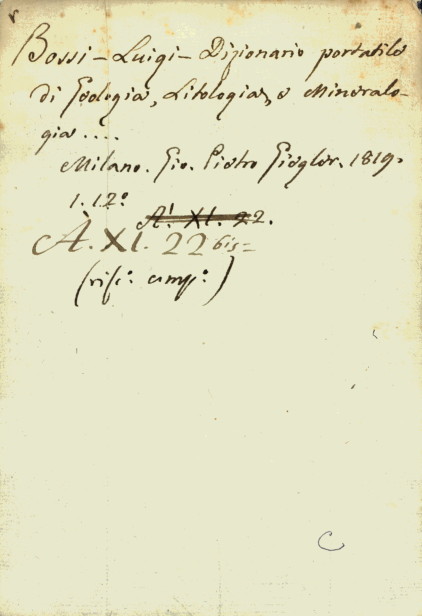 Bossi - Luigi - Dizionario portatile
di Geologia, Litologia, e Mineralo-
gia....
Milano. Gio. Pietro Giegler. 1819.
1. 12.°
A'. XI. 22.
À. XI. 22 bis=
(risc.° comp.°)
C